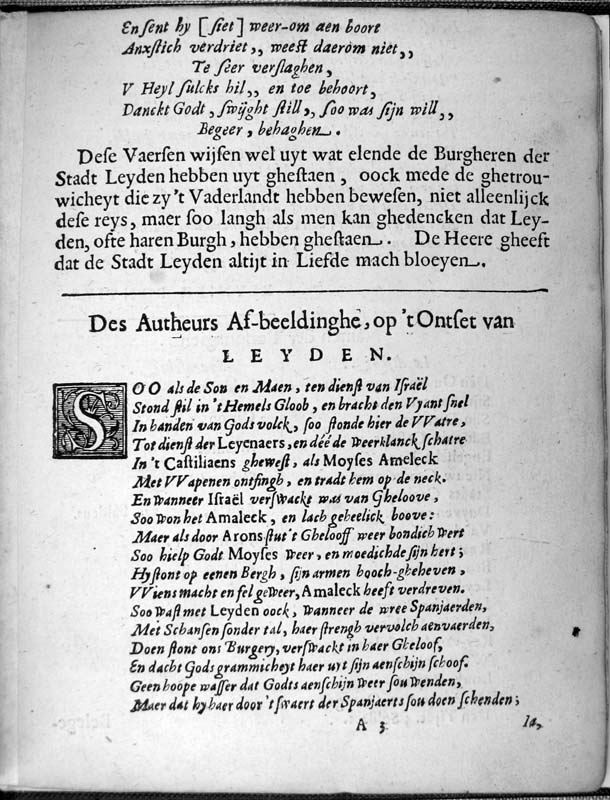 En sent hy [siet] weer-om aen boort
Anxstich verdriet,, weest daerom niet,,
Te seer verslaghen,
V Heyl sulcks hil,, en toe behoort,
Danckt Godt, swijght still,, soo was sijn will,,
Begeer, behaghen.
Dese Vaersen wijsen wel uyt wat elende de Burgheren der
Stadt Leyden hebben uyt ghestaen, oock mede de ghetrou-
wicheyt die zy 't Vaderlandt hebben bewesen, niet alleenlijck
dese reys, maer soo langh als men kan ghedencken dat Ley-
den, ofte haren Burgh, hebben ghestaen. De Heere gheeft
dat de Stadt Leyden altijt in Liefde mach bloeyen.
Des Autheurs Af-beeldinghe, op 't Ontset van
LEYDEN.
SOO als de Son en Maen, ten dienst van Israël
Stond stil in 't Hemels Gloob, en bracht den Vyant snel
In handen van Gods volck, soo stonde hier de VVatre,
Tot dienst der Leyenaers, en déé de weerklanck schatre
In 't Castiliaens ghewest, als Moyses Ameleck
Met VVapenen ontfingh, en tradt hem op de neck.
En wanneer Israël verswackt was van Gheloove,
Soo won het Amaleck, en lach geheelick boove:
Maer als door Arons stut 't Ghelooff weer bondich wert
Soo hielp Godt Moyses weer, en moedichde sijn hert;
Hy stont op eenen Bergh, sijn armen hooch-gheheven,
VViens macht en fel geweer, Amaleck heeft verdreven.
Soo wast met Leyden oock, wanneer de wree Spanjaerden,
Met Schansen sonder tal, haer strengh vervolch aenvaerden,
Doen stont ons Burgery, verswackt in haer Gheloof,
En dacht Gods grammicheyt haer uyt sijn aenschijn schoof.
Geen hoope wasser dat Godts aenschijn weer sou wenden,
Maer dat hy haer door 't swaert der Spanjaerts sou doen schenden;
A 3 Ia,